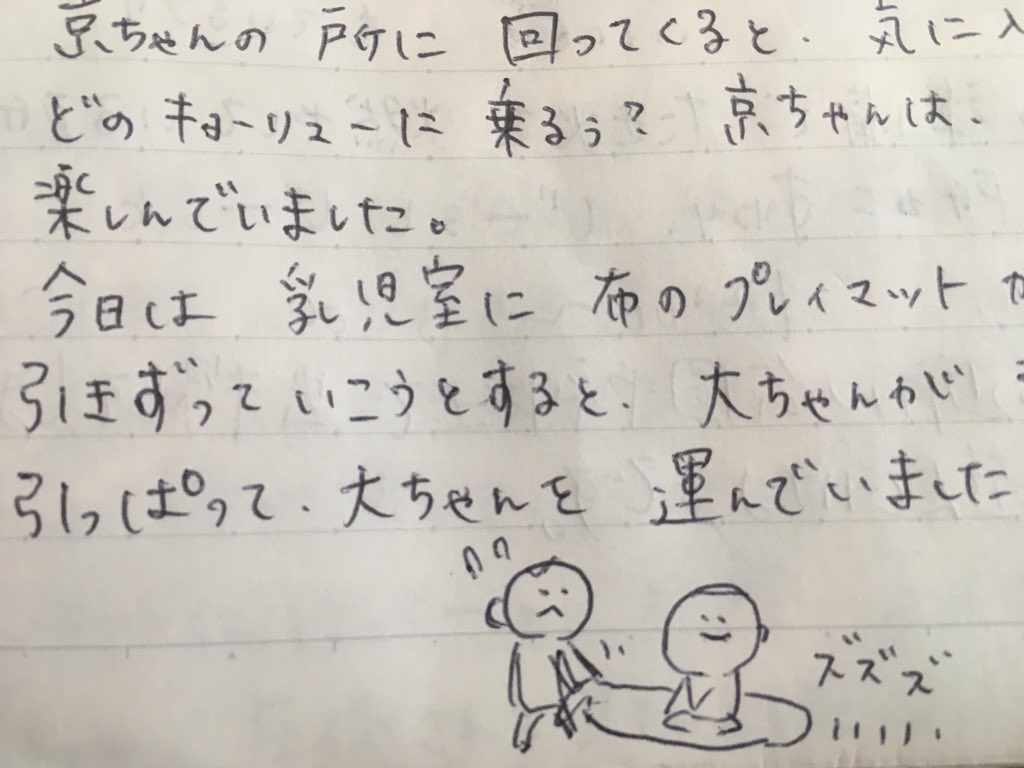 京ちゃんの 所に 回ってくると、気に入
どのキョーリューに 乗るぅ? 京ちゃんは、
楽しんでいました。
今日は 乳児室に 布のプレイマットか
引きずっていこうとすると、大ちゃんが
引っぱって、大ちゃんを 運んでいました
ズズズ